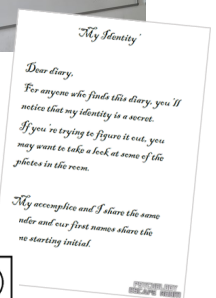 'My Identity'
Dear diary,
For anyone who finds this diary, you'll
notice that my identity is a secret.
If you're trying to figure it out, you
may want to take a look at some of the
photos in the room.
My accomplice and I share the same
nder and our first names share the
ne starting initial.
PSYCHOLOGY
ESCAPE ROOM